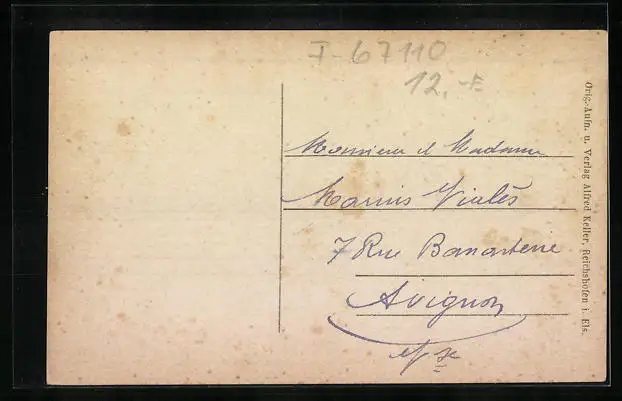 I-67110
12,-E
Monsieur & Madame
Marius Vialès
7 Rue Banasterie
Avignon
Orig.-Aufn. u. Verlag Alfred Keller, Reichshofen i. Els.